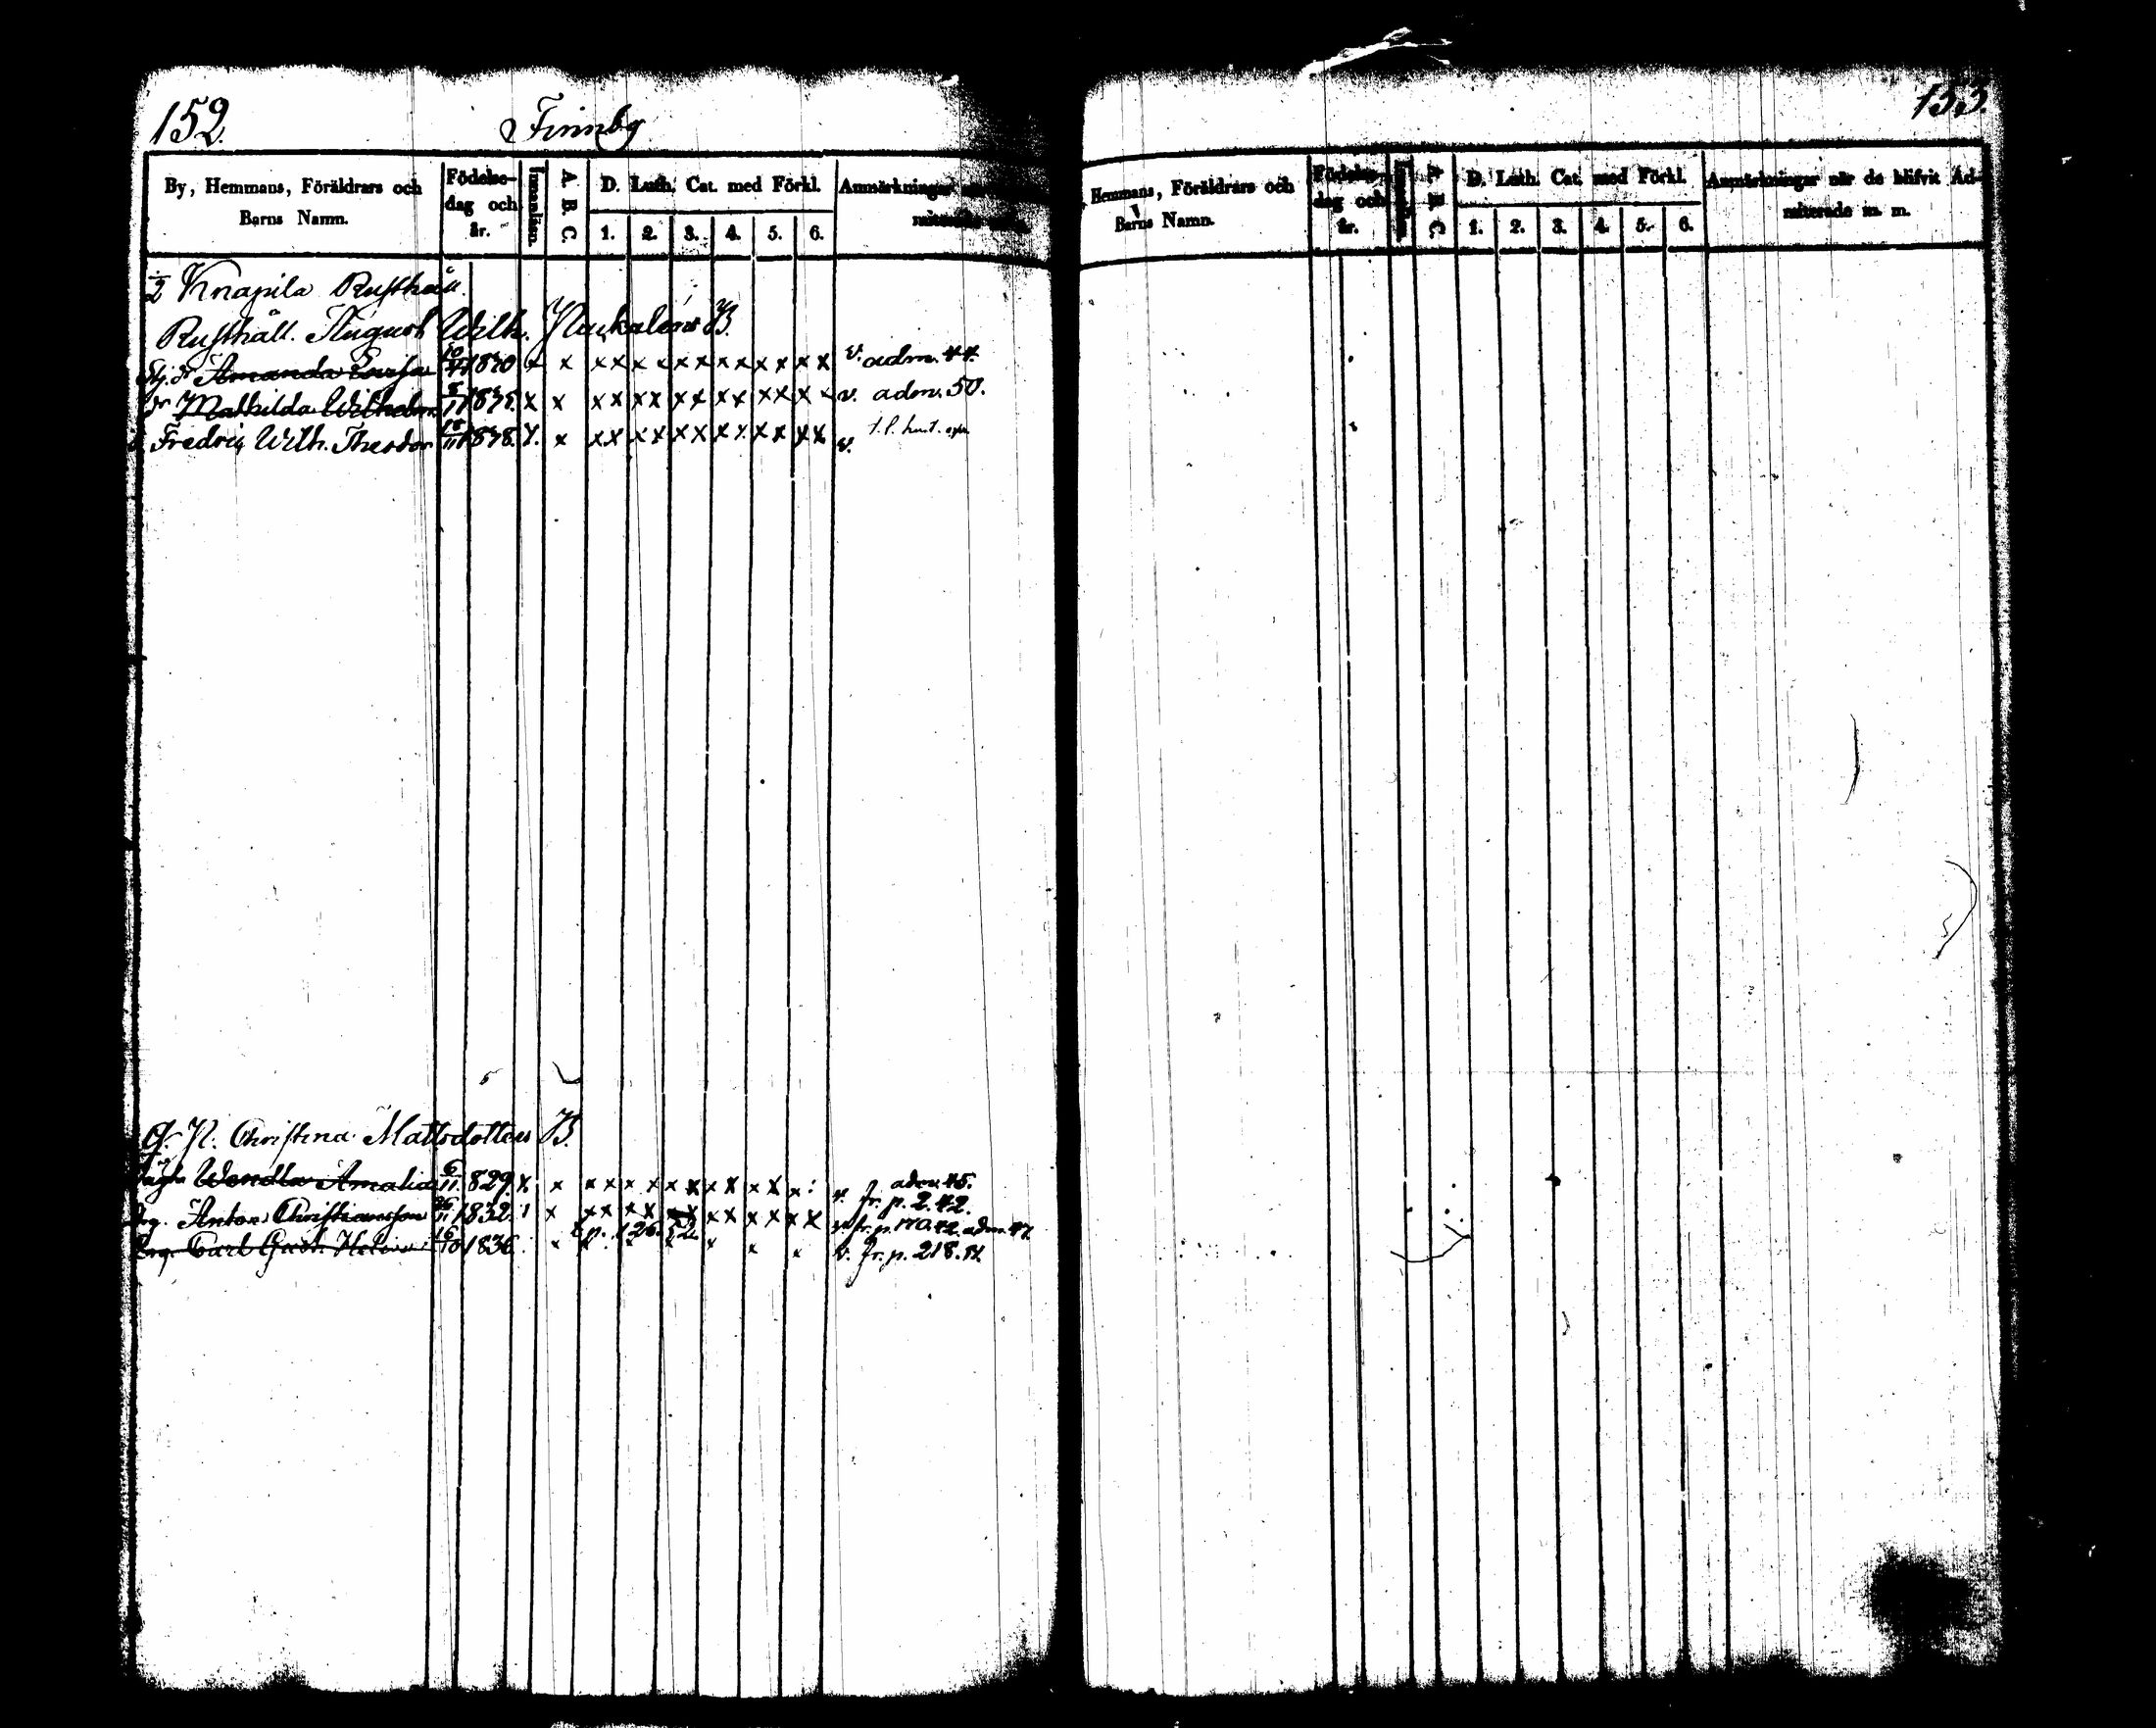 152.
Finnby
By, Hemmans, Föräldrars och Barns Namn.
Födelse-dag och år.
Innanläsn.
A. B. C.
D. Luth. Cat. med Förkl.
1. 2. 3. 4. 5. 6.
Anmärkningar
1/2 Knapila Rusthåll.
Rusthåll. August Wilh. B.
Amanda Lovisa 1830 x x x x x x x x x x x x x v. adm. 44.
dr Mathilda Wilhelm. x x x x x x x x x x x x x x v. adm. 50.
Fredric Wilh. Theodor x x x x x x x x x x x x x x v.
Christina Mattsdotters B.
Wendla Amalia 6/11 1829. x x x x x x x x x x x x x v. adm. 45.
fr. p. 2. 42.
Anton Christiansson 1832. x x x x x x x x x x x x x fr. p. 170. 42. adm. 47.
p. 126. 52.
Carl Gust. 16/10 1836. x x x x x x x v. fr. p. 218. 51.
153.
Hemmans, Föräldrars och Barns Namn.
Födelse-dag och år.
A. B. C.
D. Luth. Cat. med Förkl.
1. 2. 3. 4. 5. 6.
Anmärkningar när de blifvit Ad-mitterade m. m.